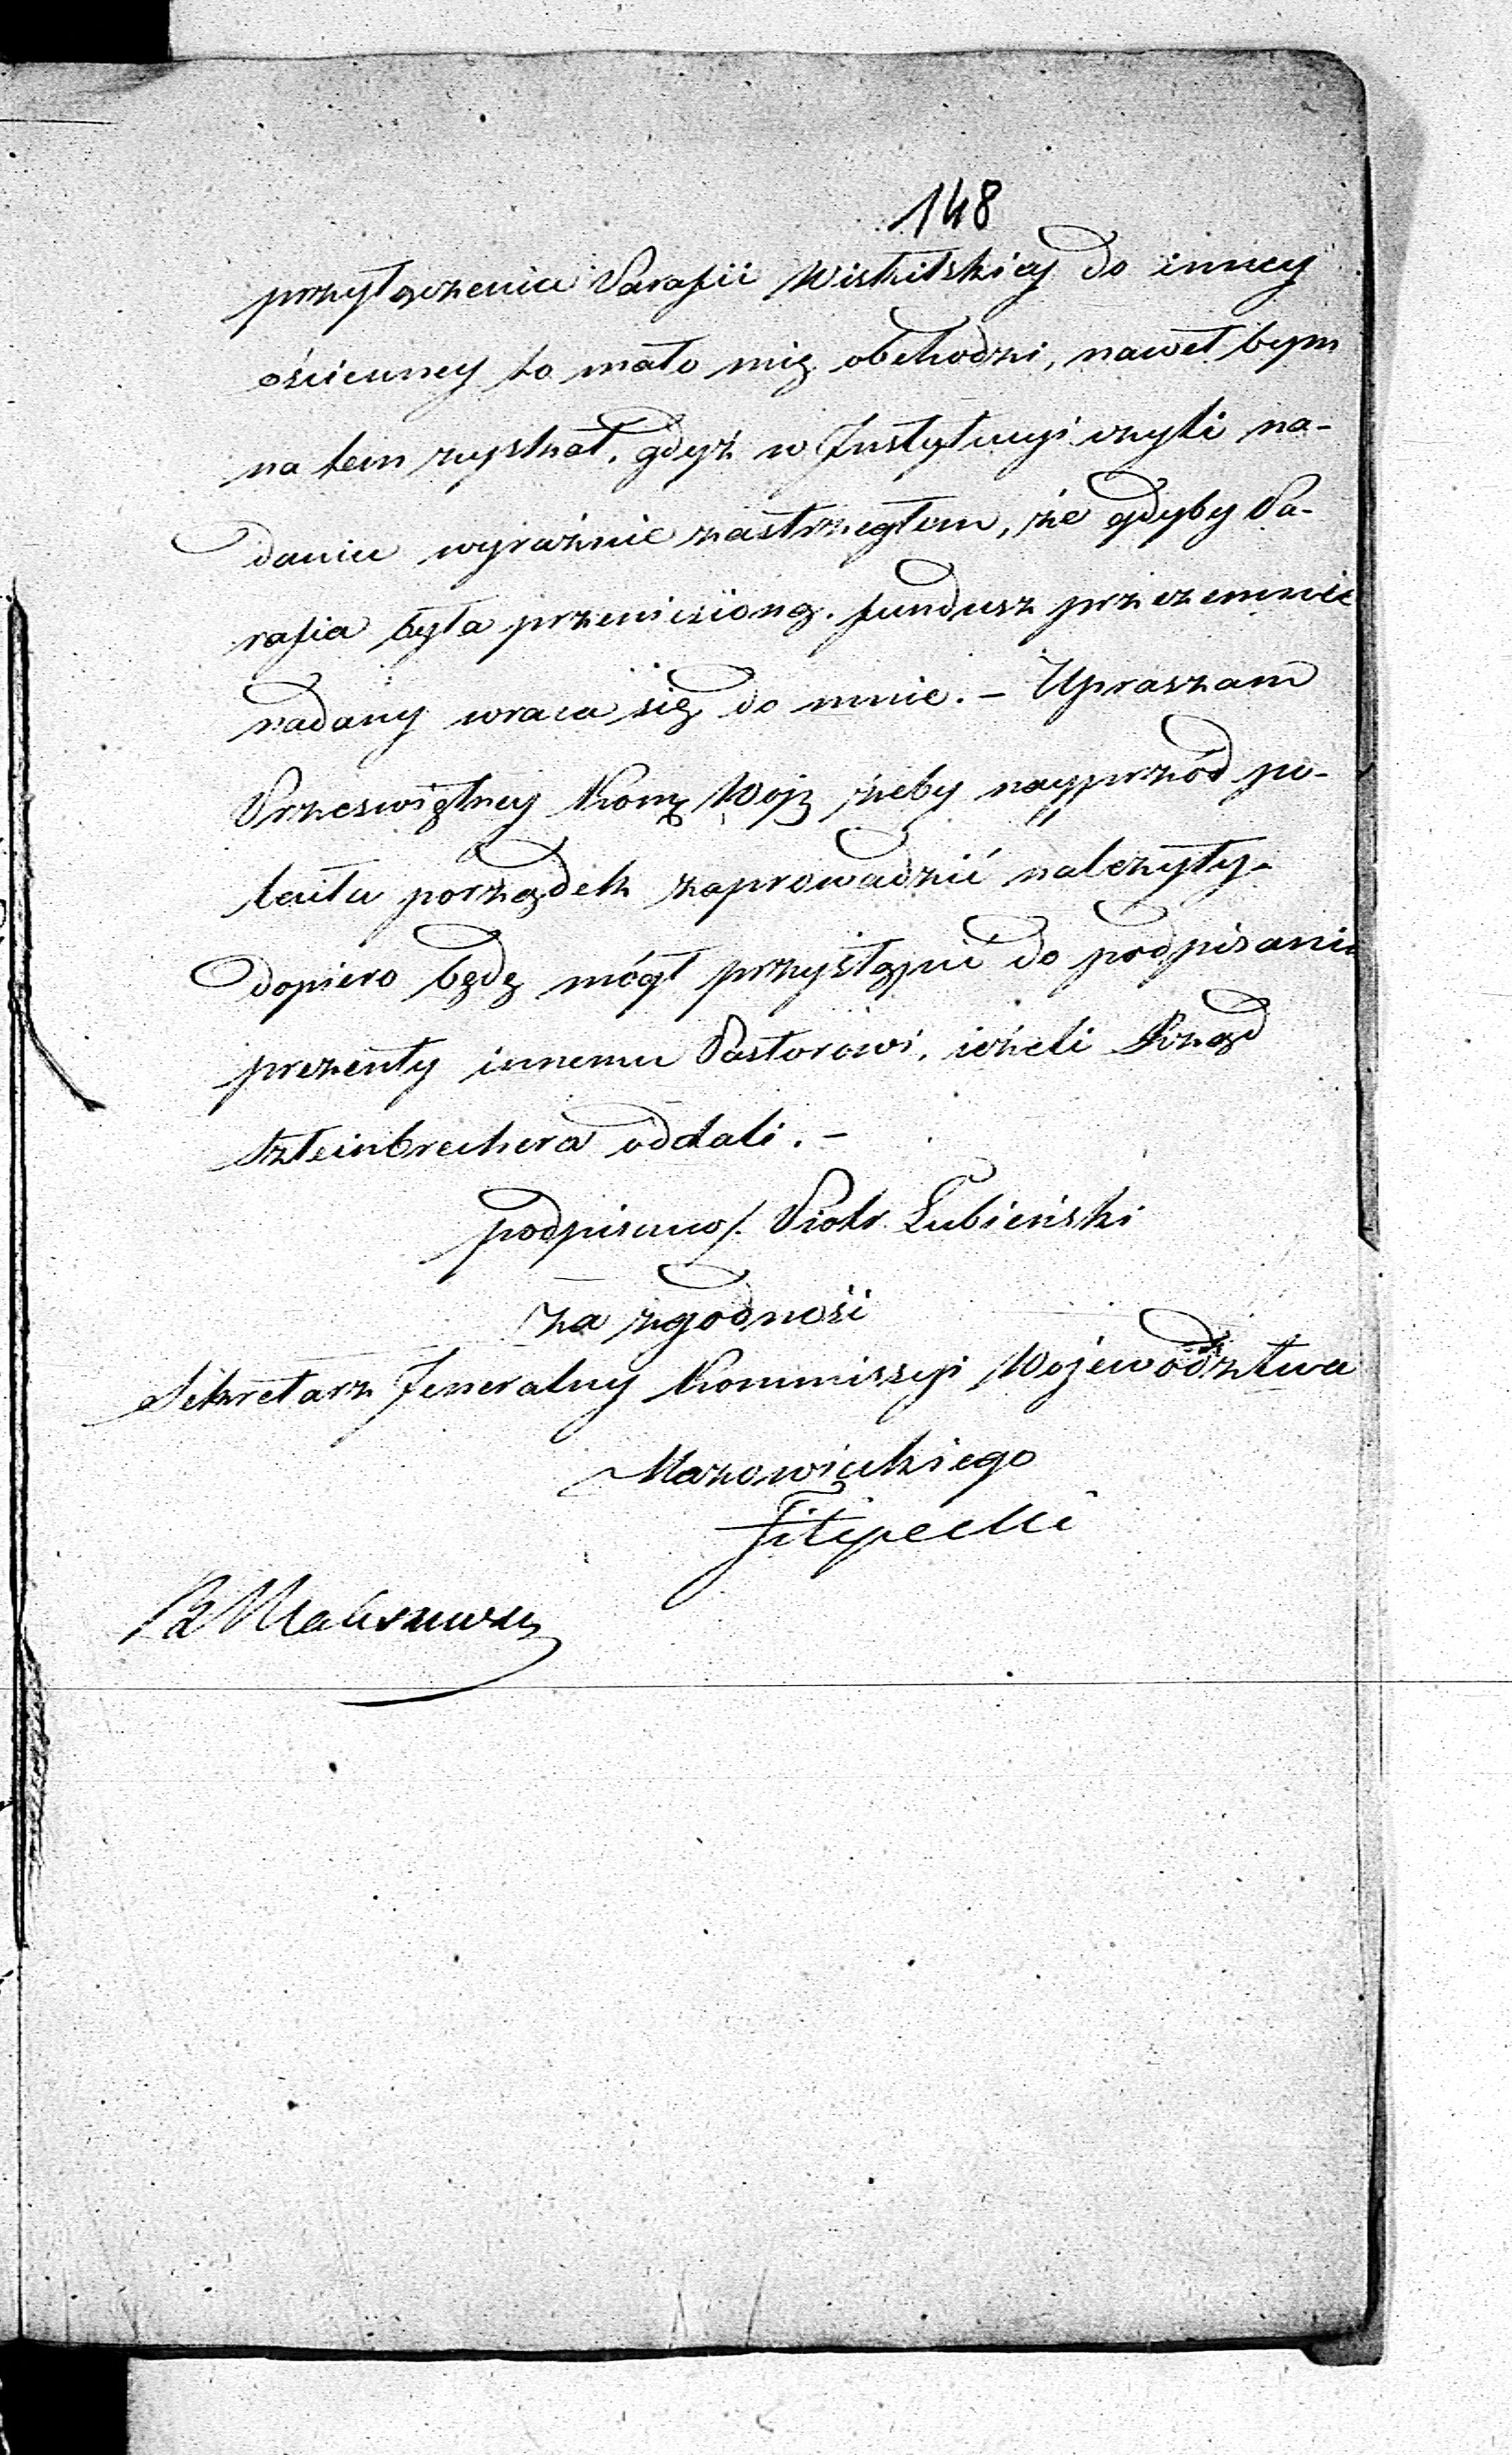 148
przyłączenia Parafii Wiskitskiey do inney
ościenney to mało mię obchodzi, nawet bym
na tem zyskał, gdyż w Instytucyi czyli na-
daniu wyraźnie zastrzegłem, że gdyby Pa-
rafia była przeniesioną. fundusz przezemnie
nadany wraca się do mnie. – Upraszam
Przeświętney Kom Woj żeby nayprzód po-
porządek zaprowadzić należyty.
dopiero będę mógł przystąpić do podpisania
prezenty innemu Pastorowi, ieżeli Rząd
Szteinbrechera oddali. –
podpisano/. Piotr Łubieński
Za zgodność
Sekretarz Jeneralny Kommissyi Województwa
Mazowieckiego
Filipecki